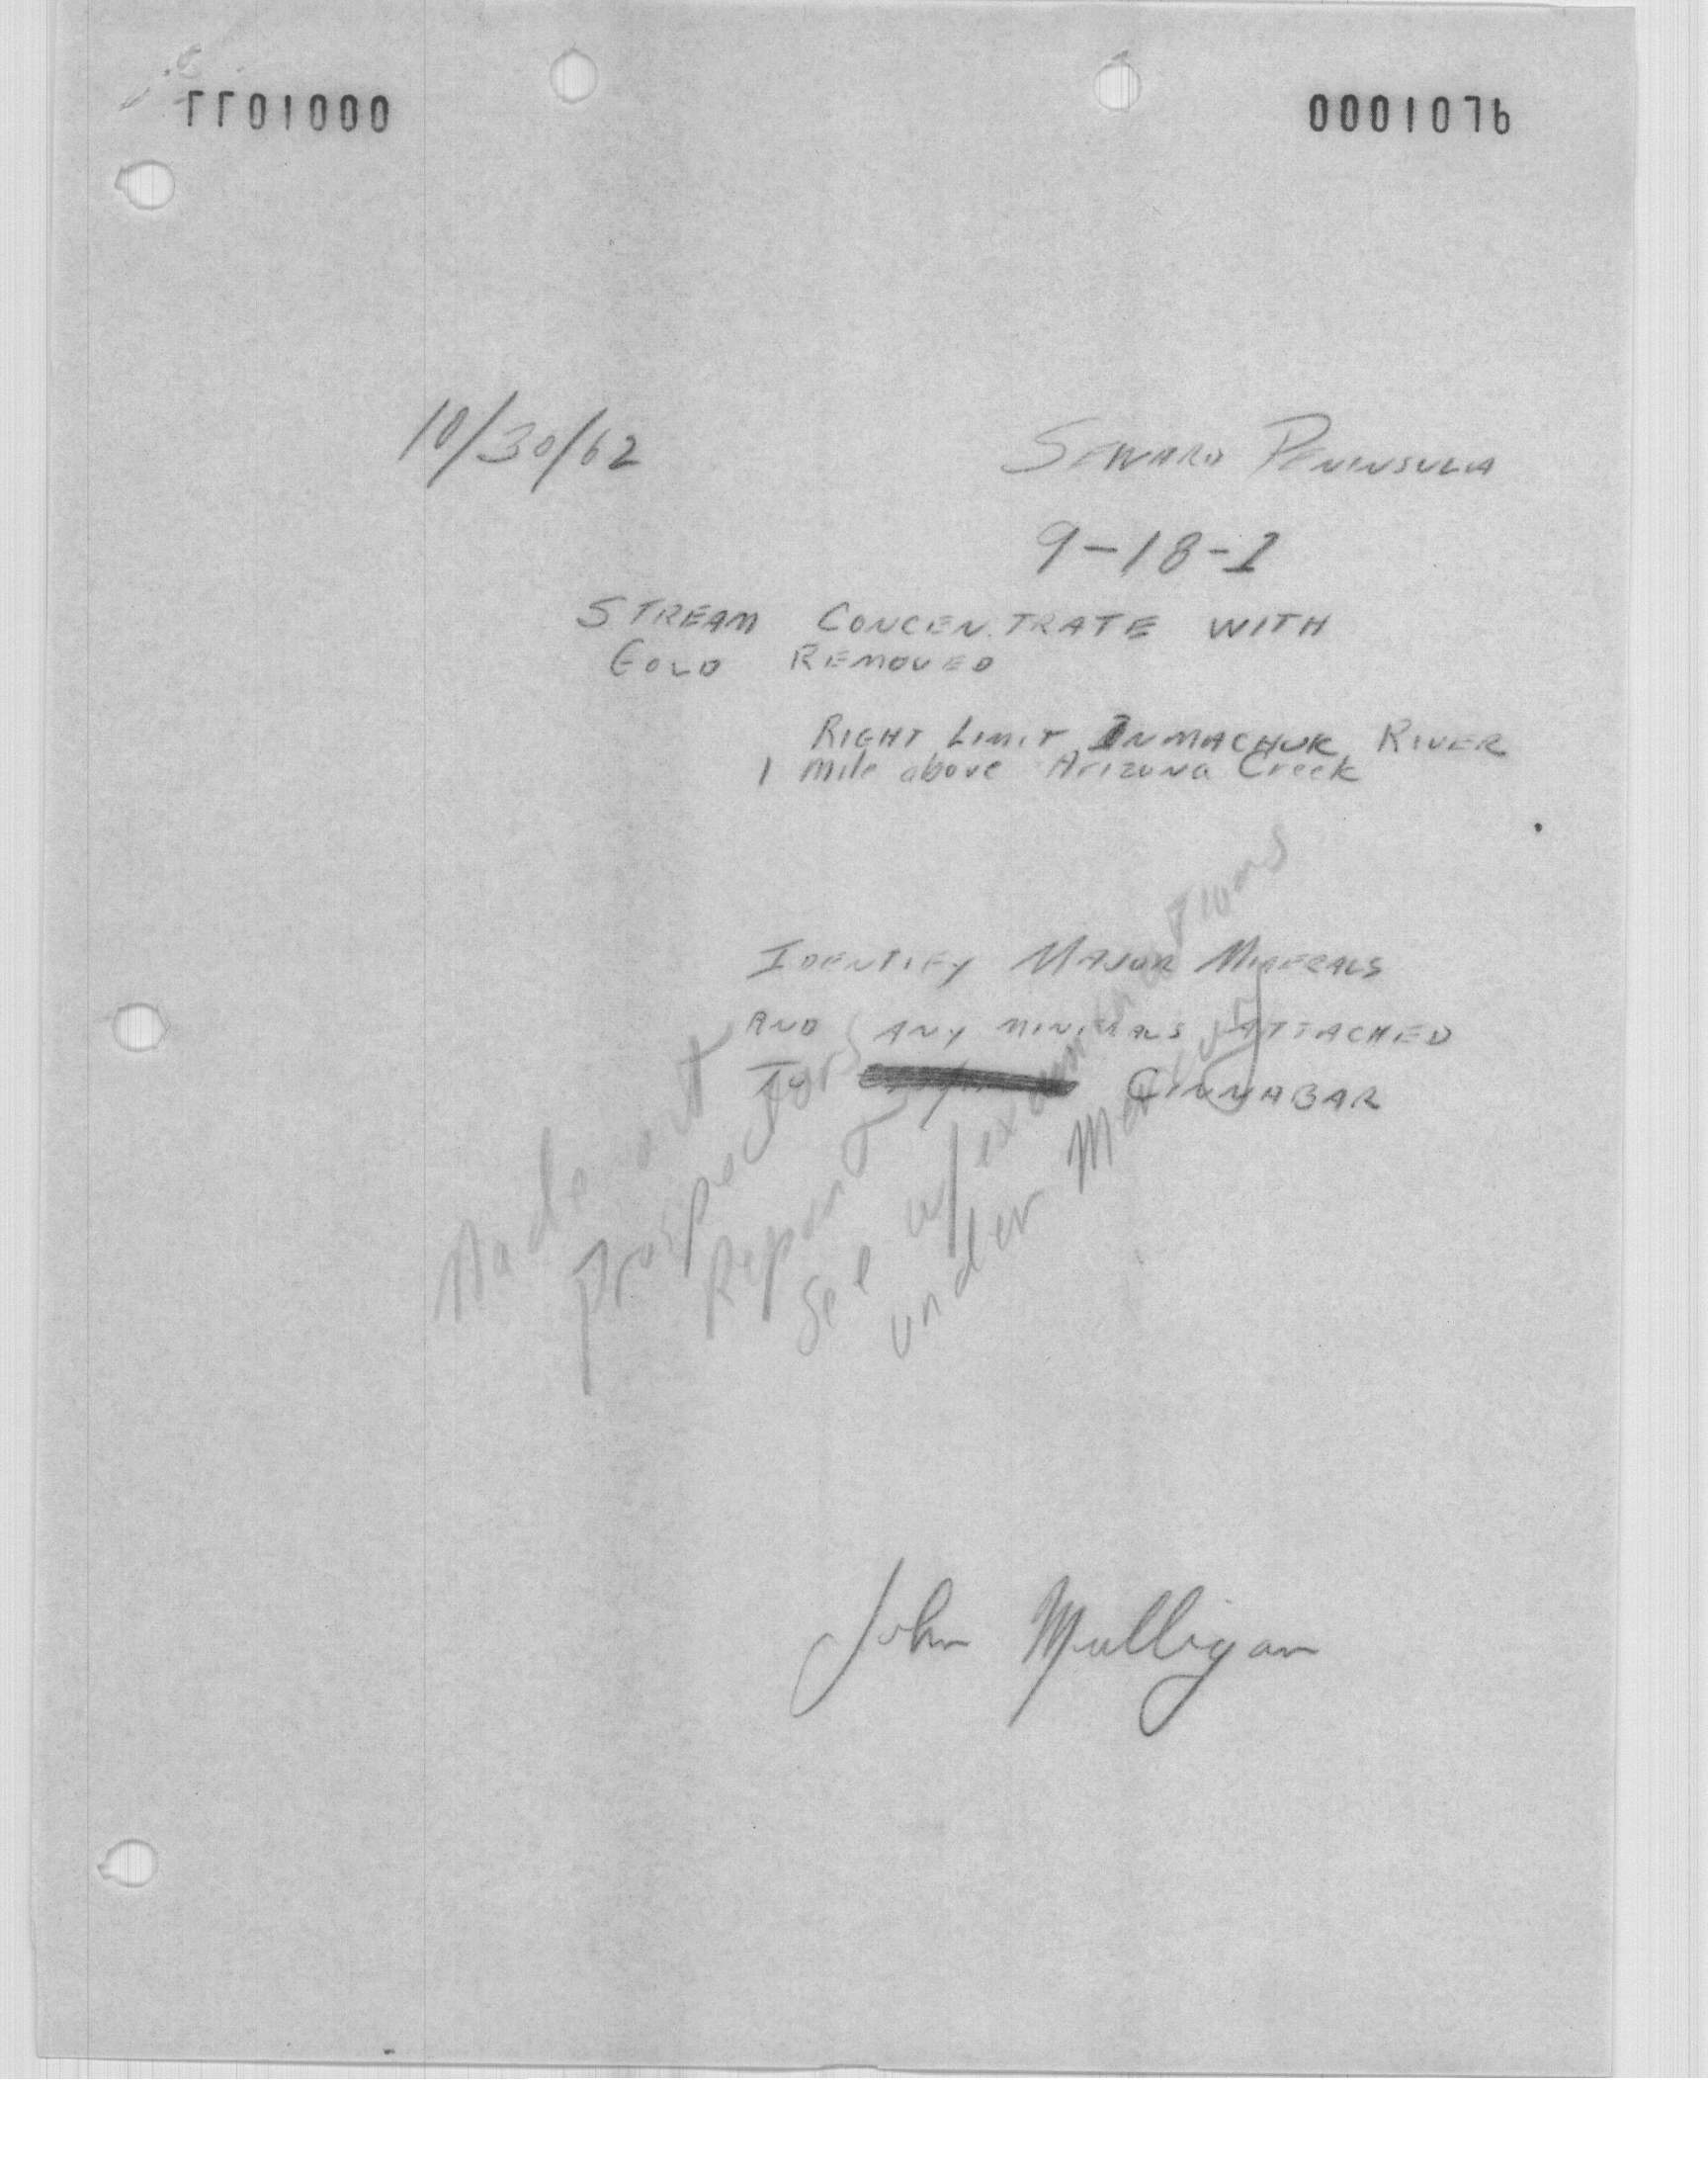 0001077
0001076
10/30/62
SEWARD PENINSULA
9-18-1
STREAM CONCENTRATE WITH
GOLD REMOVED
RIGHT LIMIT, INMACHUK RIVER
1 mile above Arizona Creek
IDENTIFY MAJOR MINERALS
AND ANY MINERALS ATTACHED
TO CINNABAR
Made out
prospectors
Report
See w/examinations
under Mercury
John Mulligan